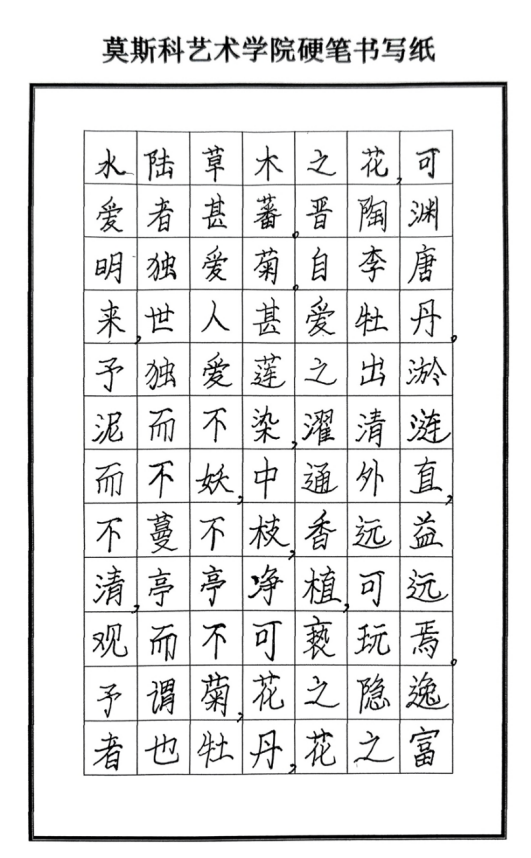 莫斯科艺术学院硬笔书写纸
水陆草木之花,可
爱者甚蕃。晋陶渊
明独爱菊。自李唐
来,世人甚爱牡丹。
予独爱莲之出淤
泥而不染,濯清涟
而不妖,中通外直,
不蔓不枝,香远益
清,亭亭净植,可远
观而不可亵玩焉。
予谓菊,花之隐逸
者也牡丹,花之富